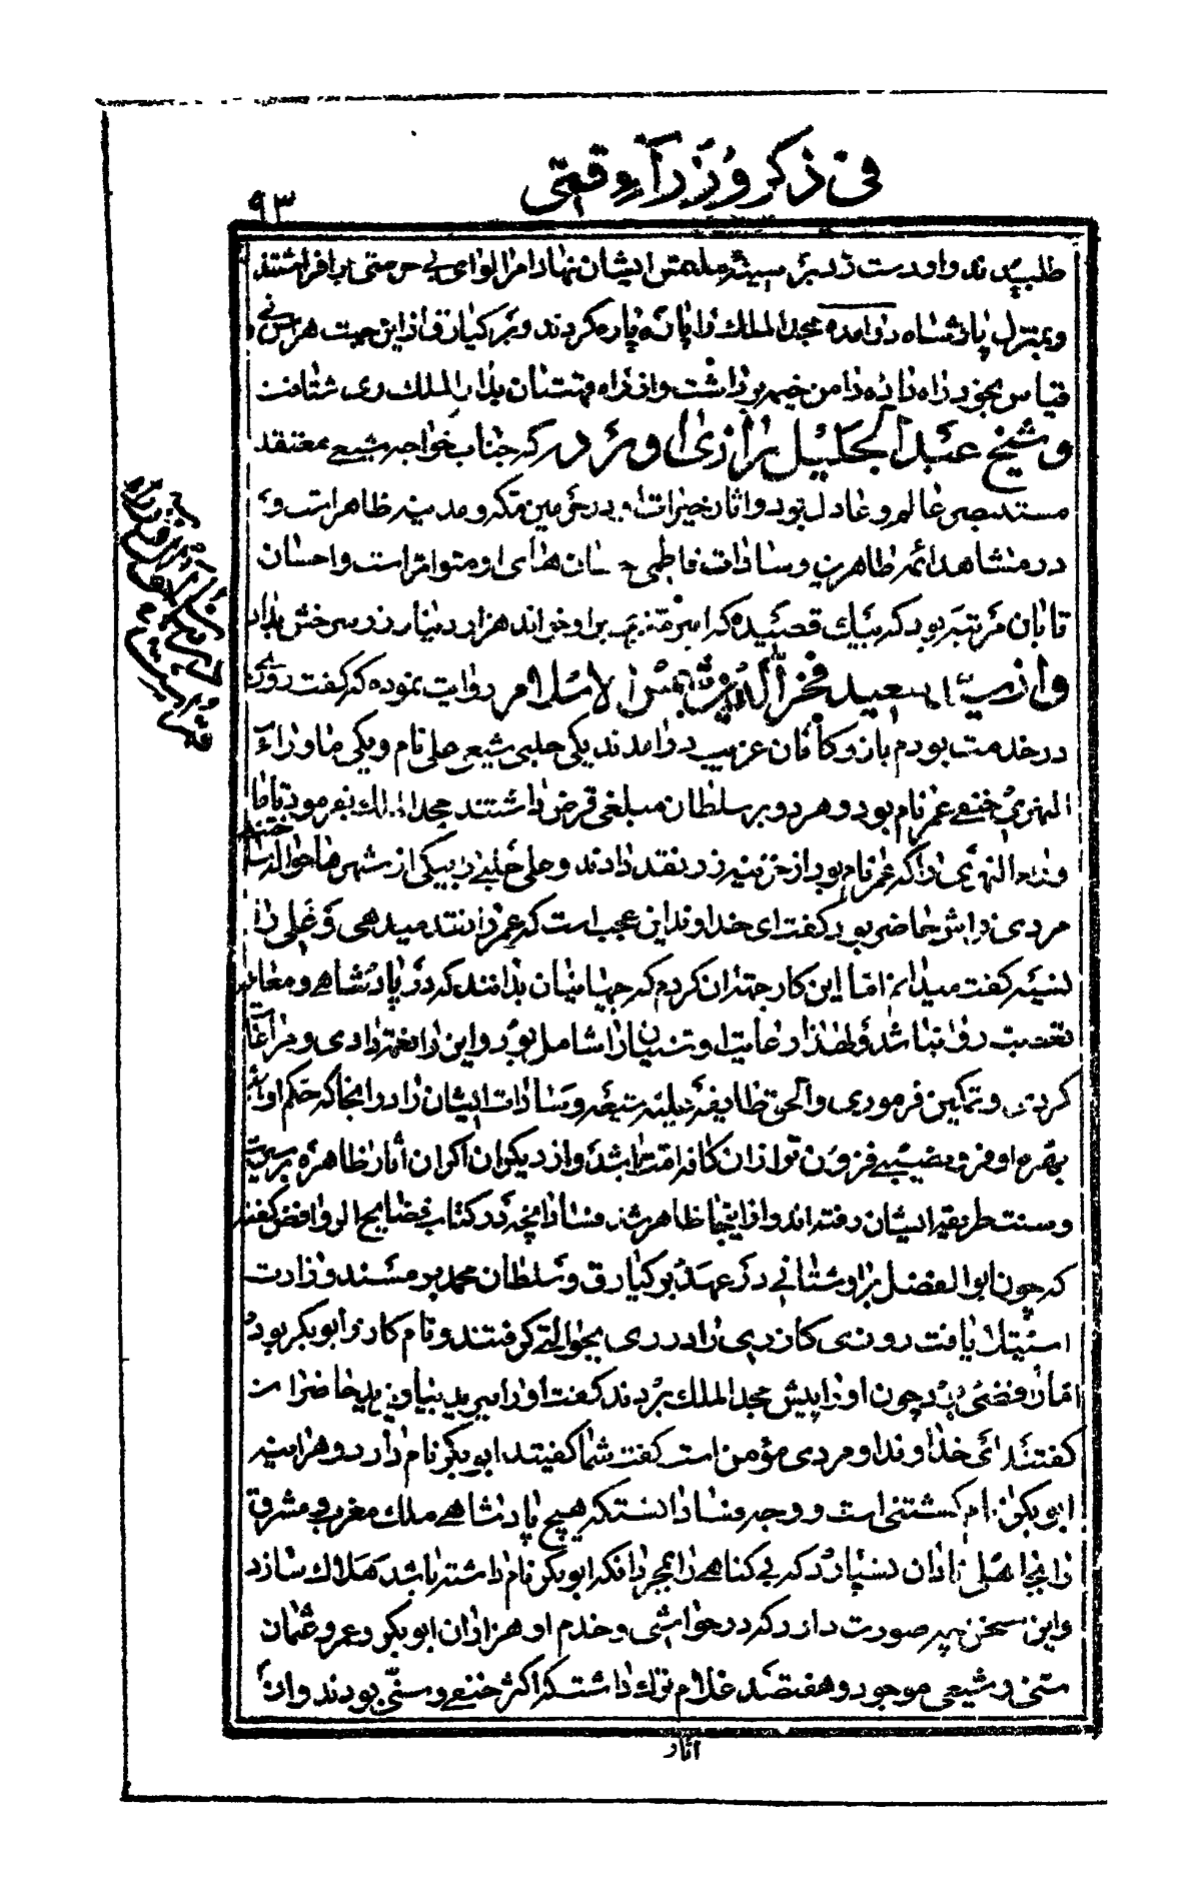 فی ذکر وزرآء قمی
۹۳
طلبیدند و او دست رد بر سینهٔ ملتمس ایشان نهاد امرا لوای بی حرمتی برافراشتند
و بمنزل پادشاه درآمده مجد الملک را پاره پاره کردند و برکیارق ازین جهت هراس بی
قیاس بخود راه داده دامن خیمه برداشت و از راه قهستان بدار الملک ری شتافت
و شیخ عبد الجلیل رازی آورده که جناب خواجه شیعی معتقد
مستبصر عالم و عادل بود و آثار خیرات او در حرمین مکه و مدینه ظاهر است و
در مشاهد ائمه طاهرین و سادات فاطمی احسان های او متواتر است و احسان
تا بآن مرتبه بود که بیک قصیده که امیر معزی بر او خواند هزار دینار زر سرخش بداد
و از سید سعید فخر الدین شمس الاسلام روایت نموده که گفت روزی
در خدمت بودم بازرگانان غریب درآمدند یکی حلبی شیعی علی نام و یکی ماوراء
النهری حنفی عمر نام بود و هر دو بر سلطان مبلغی قرض داشتند مجد الملک بفرمود تا
وراء النهری را که عمر نام بود از خزینه زر نقد دادند و علی حلبی را بیکی از شهرها حواله
مردی دانش حاضر بود گفت ای خداوند این عجب است که عمر را نقد میدهی و علی را
نسیه گفت میدانم اما این کار جهت آن کردم که جهانیان بدانند که در پادشاهی و معاملت
تعصب روا نباشد و لهذا رعایت او سنیان را شامل بود و این را دادی و مراعات
کردی و تمکین فرمودی و الحق طایفه شیعه و سادات ایشان را در آنجا که حکم او
بهره اوفر و نصیبی فزون تر از آن کافه امت باشد و از دیگران اگر آن آثار ظاهر
و سنت طریقه ایشان رفته اند و از اینجا ظاهر شد فساد آنچه در کتاب فضایح الروافض گفته
که چون ابو الفضل براوستانی در عهد برکیارق و سلطان محمد بر مسند وزارت
استیلا یافت روزی کازری را در ری بحوالتی گرفتند و نام کازر ابوبکر بود
اما رافضی بود چون او را پیش مجد الملک بردند گفت او را ببرید
گفتند ای خداوند او مردی مؤمن است گفت شما گفتید ابوبکر نام دارد و هر آینه
ابوبکر نام کشتنی است و وجه فساد آنست که هیچ پادشاهی ملک مغرب و مشرق
را بجاهلی نادان نسپارد که بی گناهی را بمجرد آنکه ابوبکر نام داشته باشد هلاک سازد
و این سخن چه صورت دارد که در حواشی و خدم او هزاران ابوبکر و عمر و عثمان
سنی و شیعی موجود و هفتصد غلام ترک داشت که اکثر حنفی و سنی بودند و از
آثار